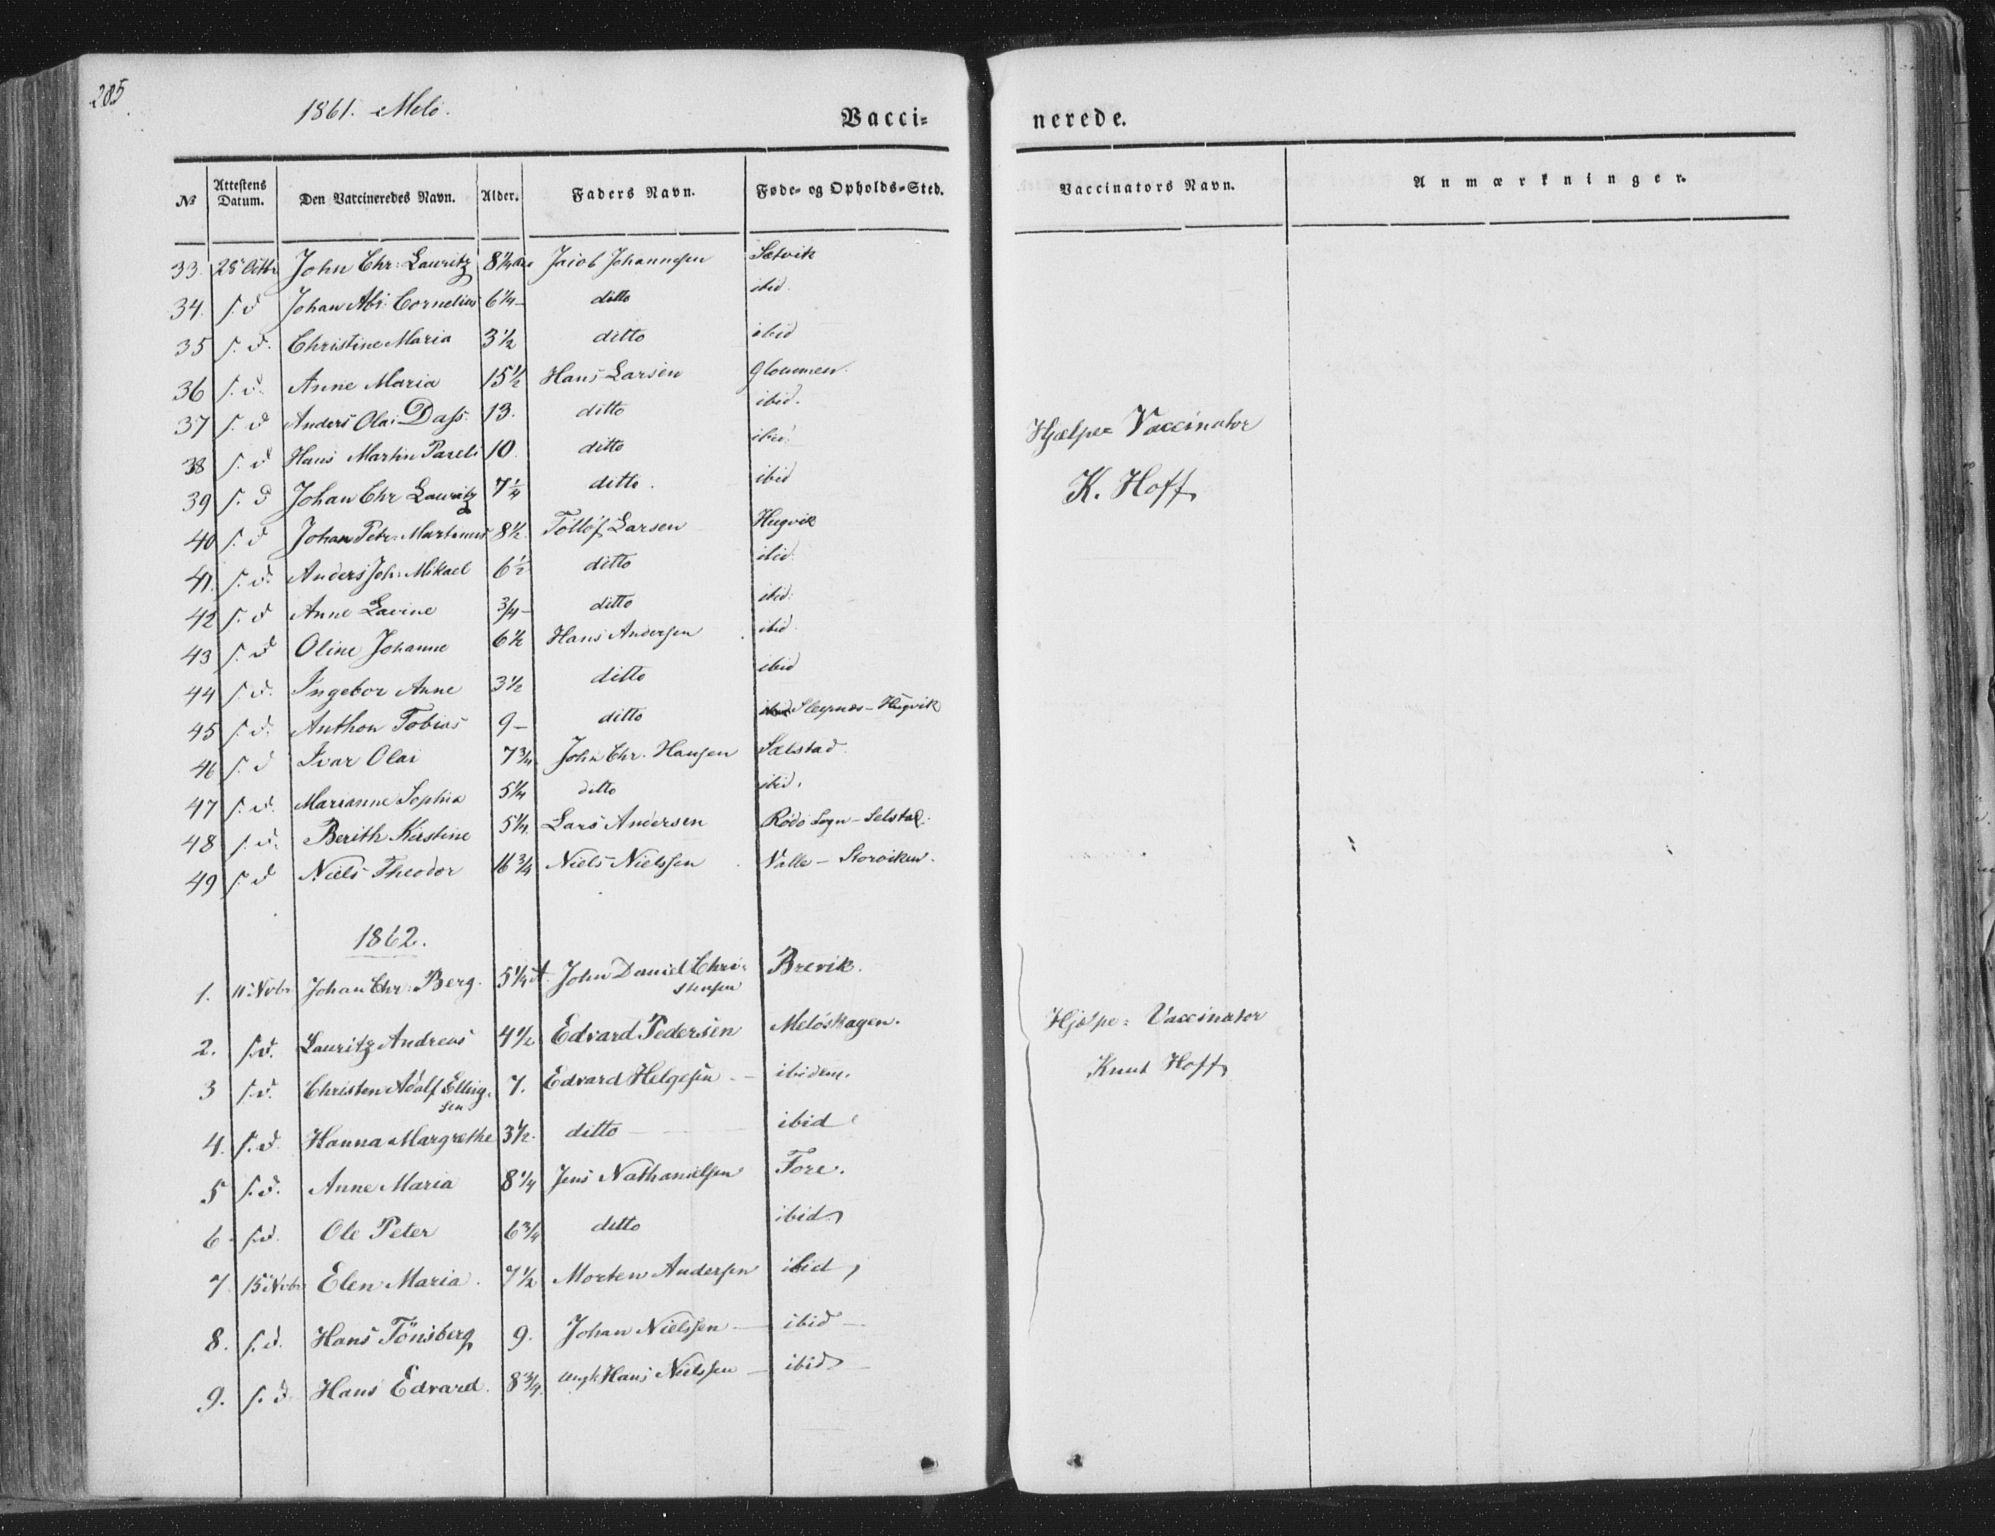 285.
1861. Melö.
Vacci= nerede.
No Attestens Datum. Den Vaccineredes Navn. Alder. Faders Navn. Føde- og Opholds-Sted. Vaccinators Navn. Anmærkninger.
33. 25 Octbr John Chr: Lauritz 8 1/4 Jacob Johannesen Sætvik
34. s. d Johan Abr. Cornelius 6 1/4 - ditto ibid.
35 s. d. Christine Maria 3 1/2 ditto ibid
36 s. d. Anne Maria 15 1/2 Hans Larsen Gloumen.
37 s. d Anders Olai Dass. 13. ditto ibid.
38 s. d Hans Martin Pareli 10. ditto ibid. Hjælpe= Vaccinator
39 s. d Johan Chr Lauritz 7 1/4 ditto. ibid K. Hoff
40 s. d Johan Petr: Martinus 8 1/2. Tollöf Larsen Hugvik
41. s. d. Anders Joh: Mikael 6 1/2 ditto ibid.
42 s. d Anne Lavine 3/4 - ditto ibid.
43 s. d Oline Johanne 6 1/2 Hans Andersen ibid.
44 s. d. Ingebor Anne 3 1/2 ditto ibid
45 s. d. Anthon Tobias 9 - ditto Slepnæs - Hugvik
46 s. d Ivar Olai 7 3/4 John Chr. Hansen Sælstad.
47 s. d. Marianne Sophia 5 1/4 ditto ibid.
48 s. d. Berith Kirstine 5 1/4. Lars Andersen Rödö Sogn - Selstad.
49 s. d Niels Theodor 16 3/4 Niels Nielssen Valle - Storviken.
1862.
1. 11 Novbr Johan Chr: Berg. 5 1/4 A. John Daniel Chri-
stensen Brevik.
2. s. d. Lauritz Andreas 4 1/2 Edvard Pedersen Melöskagen. Hjelpe= Vaccinator
3 s. d. Christen Adolf Elling-
sen 7. Edvard Helgesen - ibidem. Knut Hoff
4. s. d. Hanna Margrethe 3 1/2. ditto ibid
5 s. d. Anne Maria 8 1/4 Jens Nathanielsen Fore.
6 - s. d. Ole Peter 6 3/4 ditto ibid
7. 15 Novbr Elen Maria. 7 1/2 Morten Andersen ibid
8. s. d. Hans Tönsberg 9. Johan Nielssen - ibid -
9. s. d. Hans Edvard. 8 3/4. Hans Nielssen - ibid -